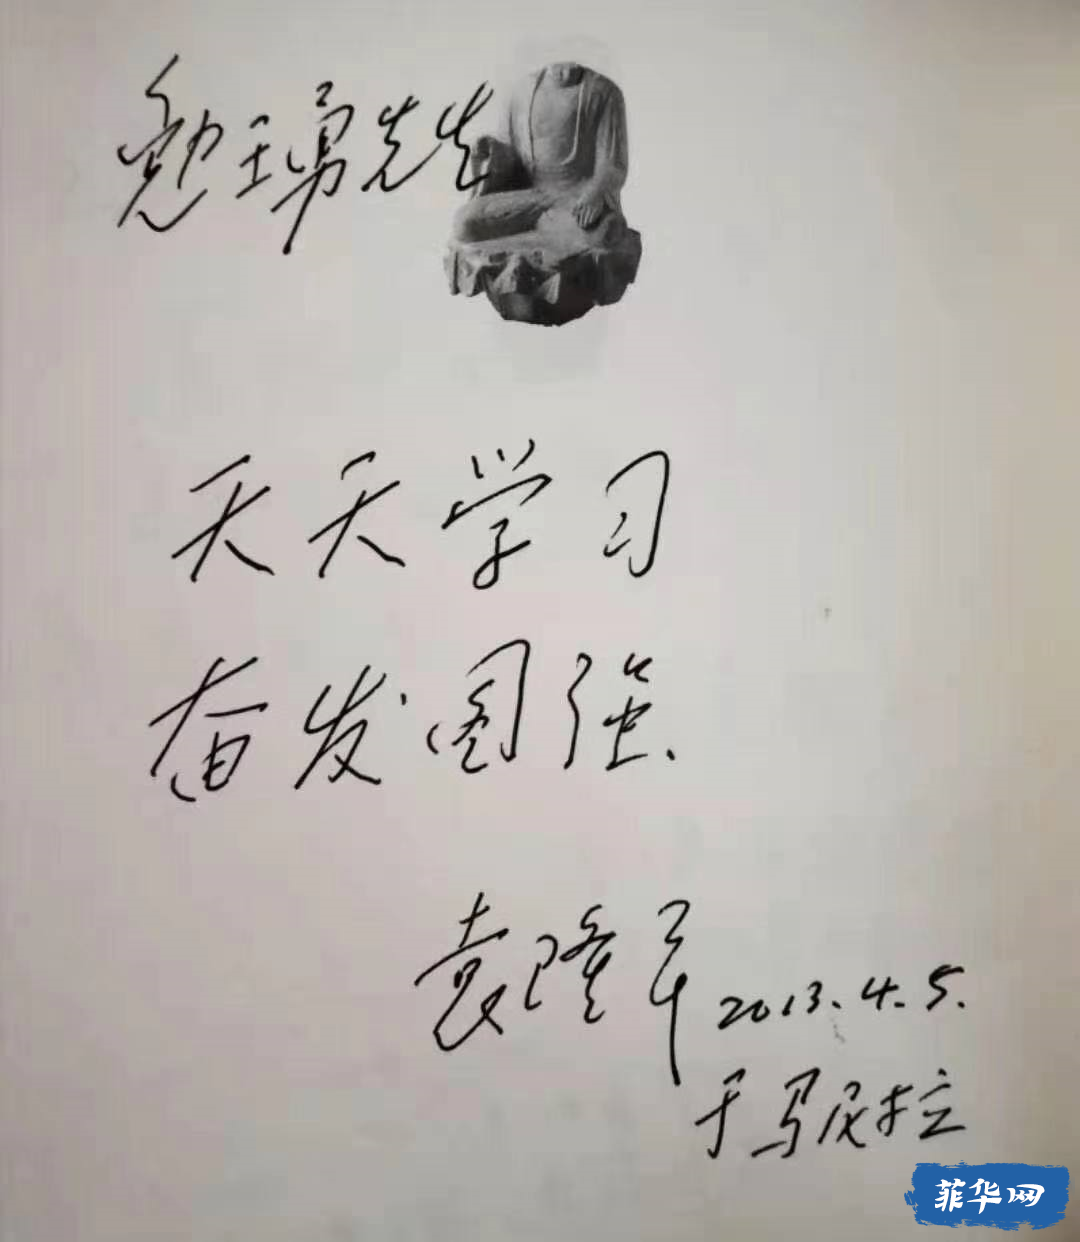 勉王勇先生
天天学习
奋发图强.
袁隆平 2013.4.5.
于马尼拉
菲华网